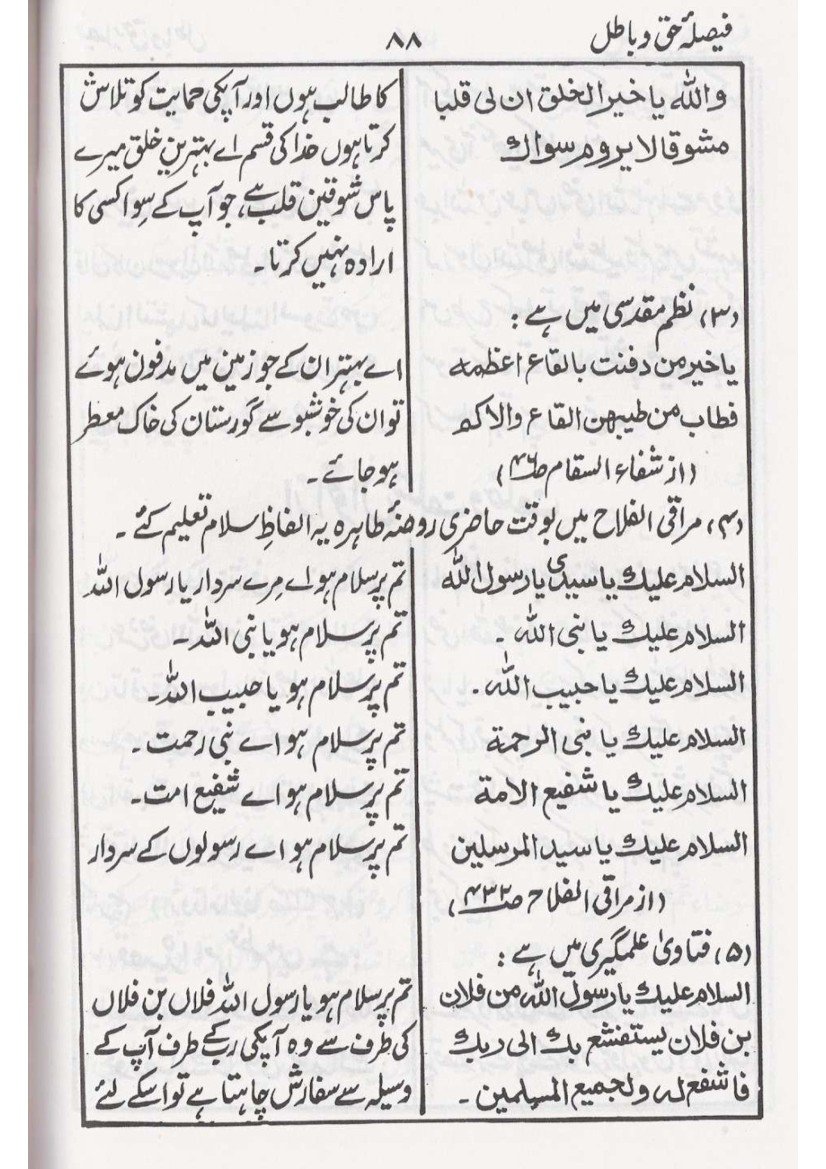 فیصلۂ حق و باطل
۸۸
واللہ یا خیر الخلق ان لی قلبا
مشوقا لا یروم سواك
کا طالب ہوں اور آپکی حمایت کو تلاش
کرتا ہوں خدا کی قسم اے بہترین خلق میرے
پاس شوقین قلب ہے، جو آپ کے سوا کسی کا
ارادہ نہیں کرتا۔
(۳) نظم مقدسی میں ہے :
یا خیر من دفنت بالقاع اعظمه
فطاب من طیبهن القاع والاکم
(از شفاء السقام ص۴۶)
اے بہتر ان کے جو زمین میں مدفون ہوئے
تو ان کی خوشبو سے گورستان کی خاک معطر
ہو جائے۔
(۴) مراقی الفلاح میں بوقت حاضری روضۂ طاہرہ یہ الفاظِ سلام تعلیم کئے۔
السلام علیك یا سیدی یا رسول اللہ
السلام علیك یا نبی اللہ۔
السلام علیك یا حبیب اللہ۔
السلام علیك یا نبی الرحمة
السلام علیك یا شفیع الامة
السلام علیك یا سید المرسلین
(از مراقی الفلاح ص۴۳۲)
تم پر سلام ہو اے مرے سردار یا رسول اللہ
تم پر سلام ہو یا نبی اللہ۔
تم پر سلام ہو یا حبیب اللہ۔
تم پر سلام ہو اے نبی رحمت۔
تم پر سلام ہو اے شفیع امت۔
تم پر سلام ہو اے رسولوں کے سردار
(۵) فتاویٰ علمگیری میں ہے :
السلام علیك یا رسول اللہ من فلان
بن فلان یستشفع بك الی ربك
فاشفع له ولجمیع المسلمین۔
تم پر سلام ہو یا رسول اللہ فلاں بن فلاں
کی طرف سے وہ آپکی رب کے طرف آپ کے
وسیلہ سے سفارش چاہتا ہے تو اسکے لئے